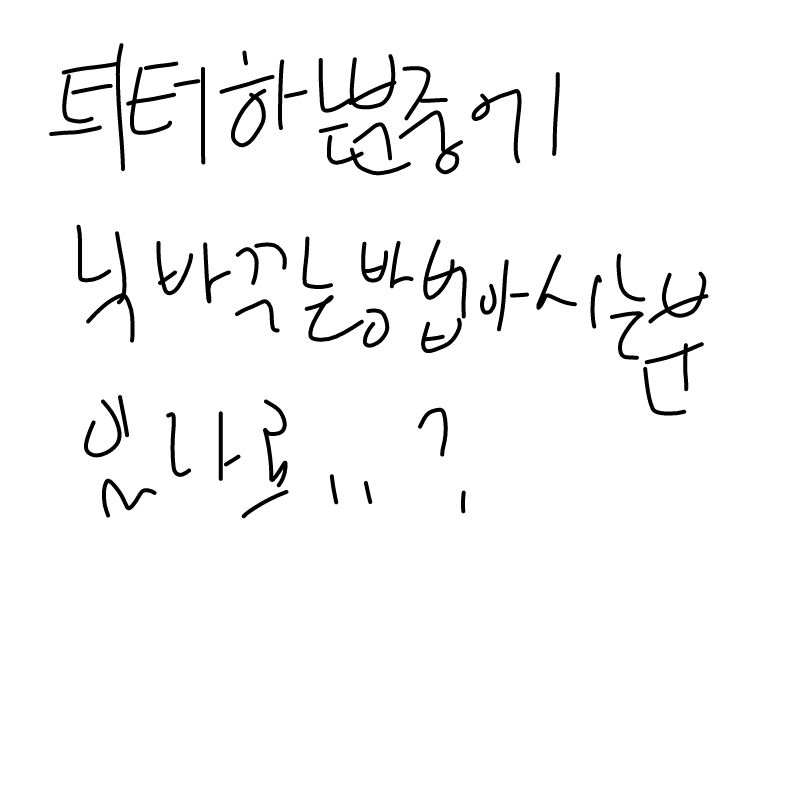 틔터하는분중에
닉바꾸는방법아시는분
있나료..?